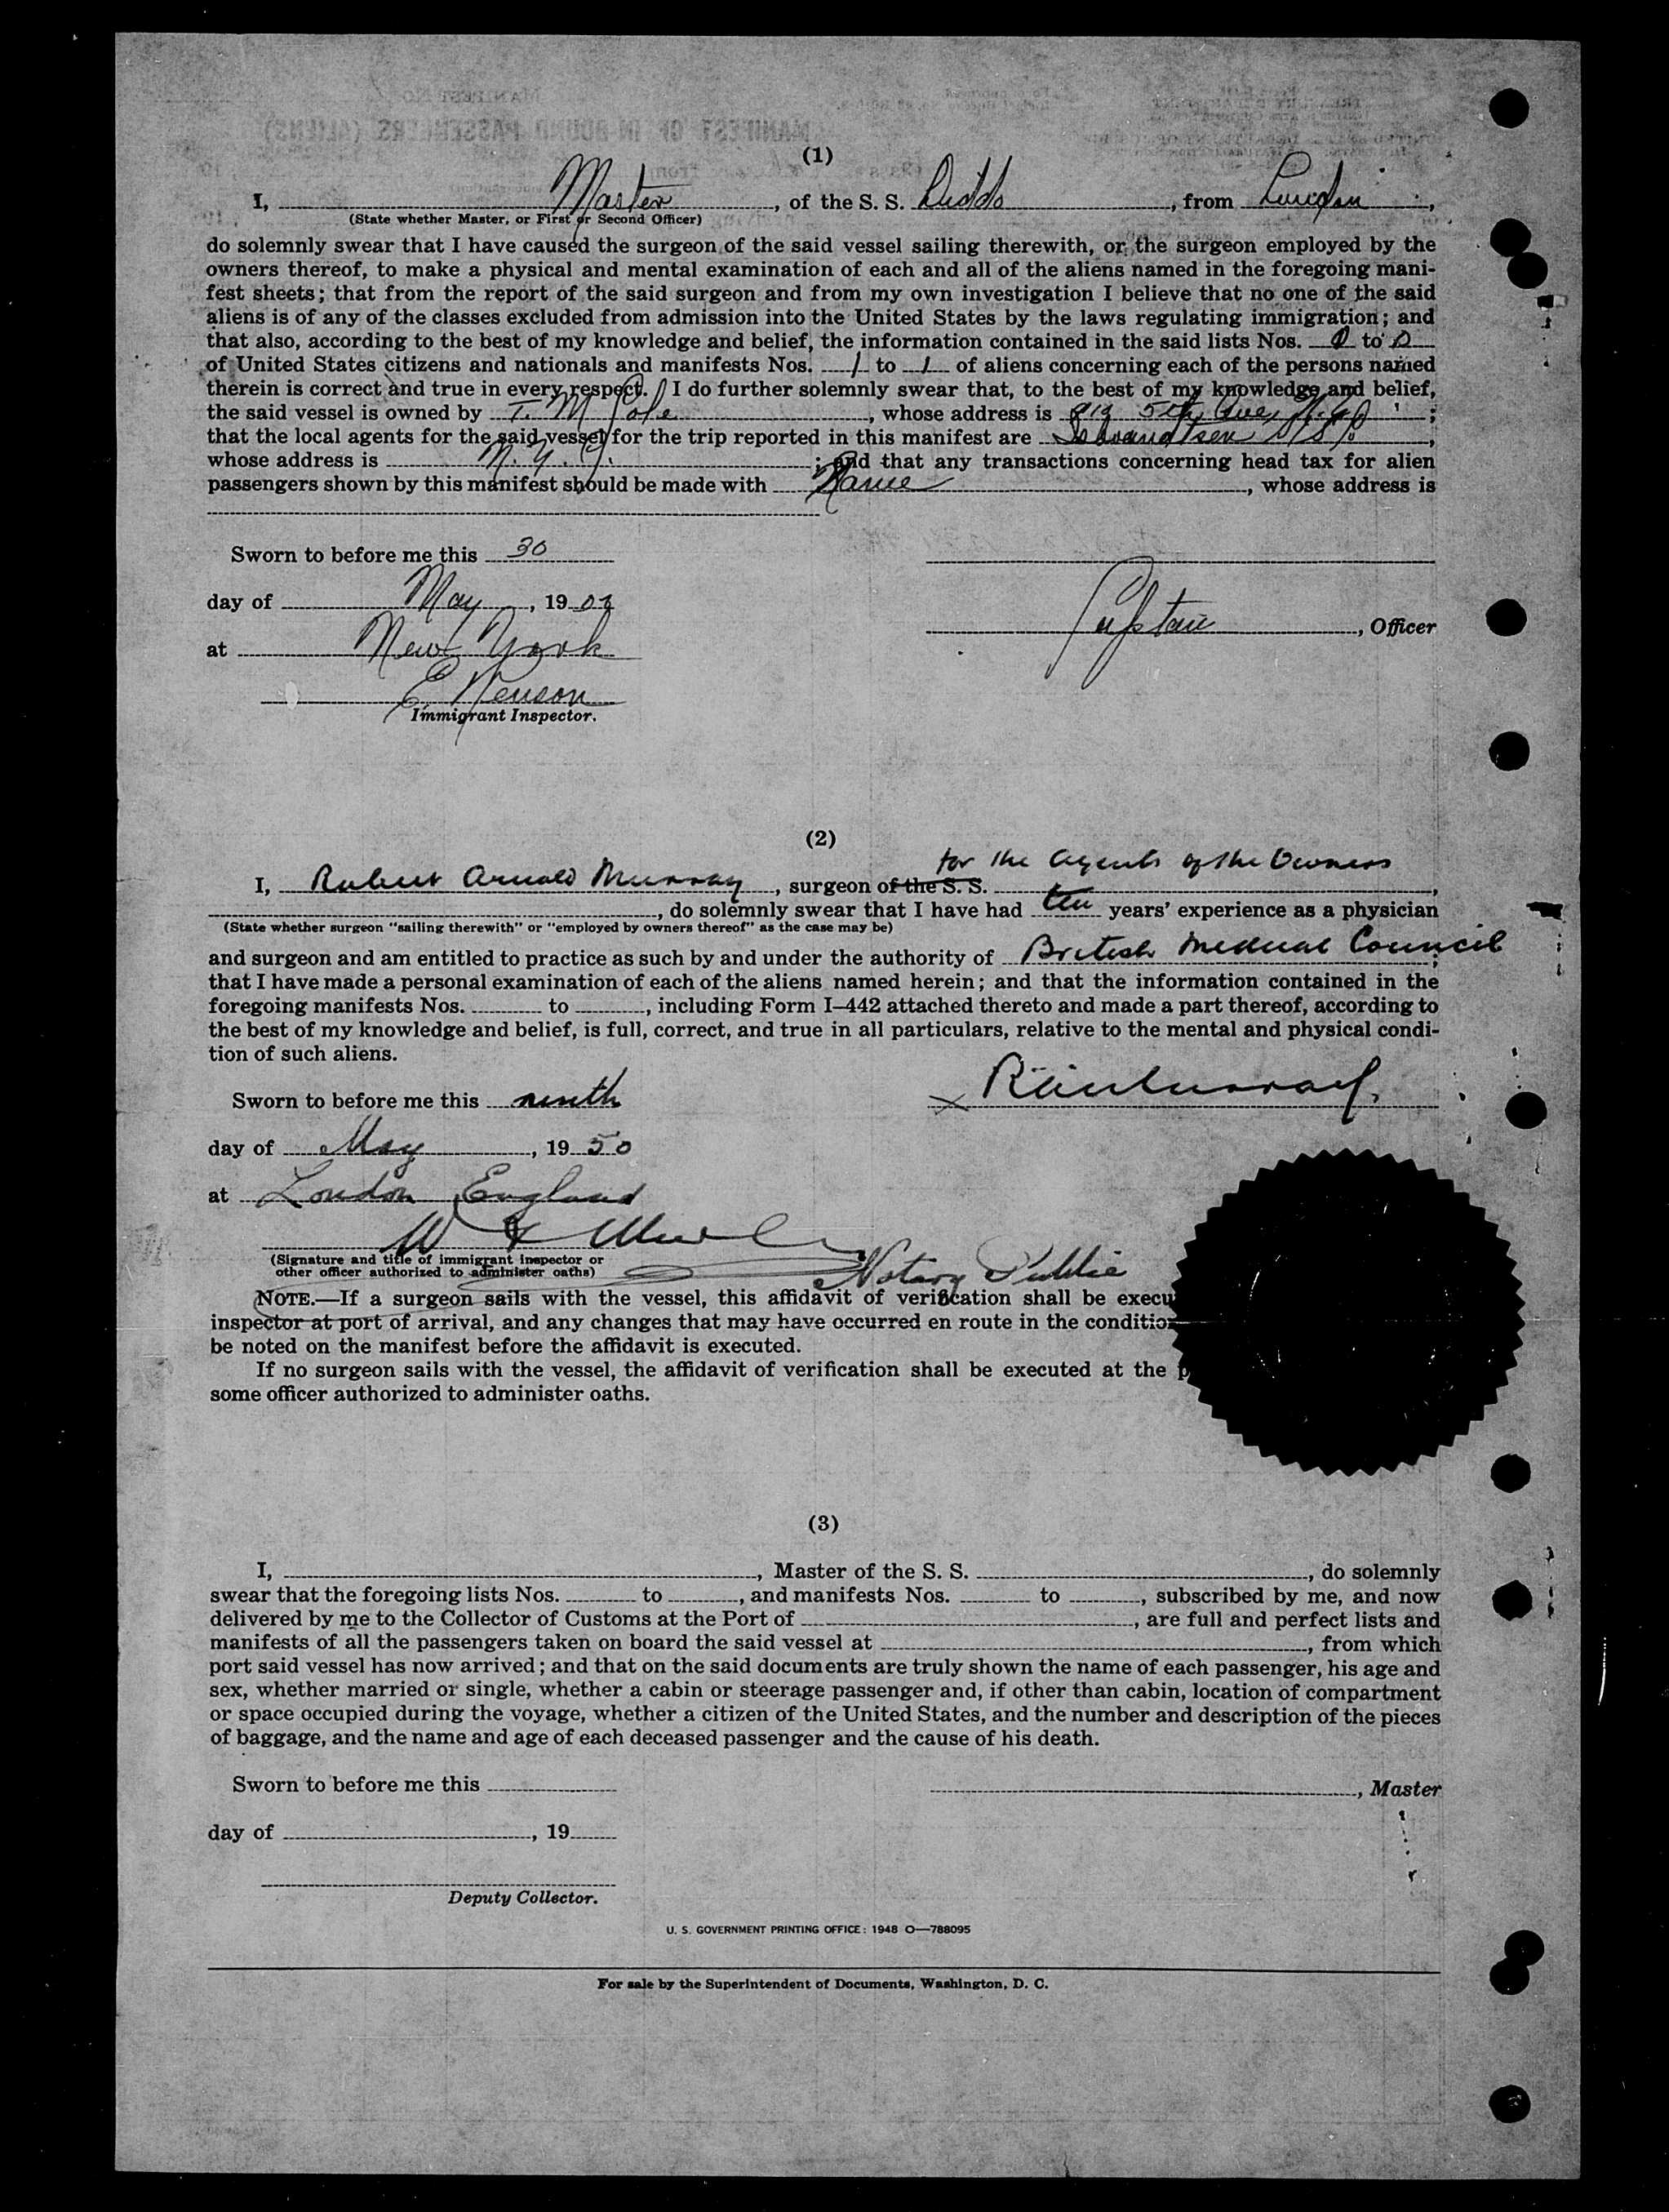 (1)
I, Master, of the S. S. , from London,
(State whether Master, or First or Second Officer)
do solemnly swear that I have caused the surgeon of the said vessel sailing therewith, or the surgeon employed by the
owners thereof, to make a physical and mental examination of each and all of the aliens named in the foregoing mani-
fest sheets; that from the report of the said surgeon and from my own investigation I believe that no one of the said
aliens is of any of the classes excluded from admission into the United States by the laws regulating immigration; and
that also, according to the best of my knowledge and belief, the information contained in the said lists Nos. 0 to 0
of United States citizens and nationals and manifests Nos. 1 to 1 of aliens concerning each of the persons named
therein is correct and true in every respect. I do further solemnly swear that, to the best of my knowledge and belief,
the said vessel is owned by T. M. Cole, whose address is 5th Ave, N.Y. ;
that the local agents for the said vessel for the trip reported in this manifest are ,
whose address is N. Y. C. ; and that any transactions concerning head tax for alien
passengers shown by this manifest should be made with Same, whose address is
Sworn to before me this 30
day of May, 19
at New York
, Officer
Immigrant Inspector.
(2)
for the Agents of the Owners
I, Robert Arnold Murray, surgeon of the S. S. ,
, do solemnly swear that I have had ten years' experience as a physician
(State whether surgeon "sailing therewith" or "employed by owners thereof" as the case may be)
and surgeon and am entitled to practice as such by and under the authority of British Medical Council;
that I have made a personal examination of each of the aliens named herein; and that the information contained in the
foregoing manifests Nos. to , including Form I-442 attached thereto and made a part thereof, according to
the best of my knowledge and belief, is full, correct, and true in all particulars, relative to the mental and physical condi-
tion of such aliens.
Sworn to before me this ninth
day of May, 1950
at London England
Notary Public
(Signature and title of immigrant inspector or
other officer authorized to administer oaths)
NOTE.—If a surgeon sails with the vessel, this affidavit of verification shall be execu
inspector at port of arrival, and any changes that may have occurred en route in the condition
be noted on the manifest before the affidavit is executed.
If no surgeon sails with the vessel, the affidavit of verification shall be executed at the p
some officer authorized to administer oaths.
(3)
I, , Master of the S. S. , do solemnly
swear that the foregoing lists Nos. to , and manifests Nos. to , subscribed by me, and now
delivered by me to the Collector of Customs at the Port of , are full and perfect lists and
manifests of all the passengers taken on board the said vessel at , from which
port said vessel has now arrived; and that on the said documents are truly shown the name of each passenger, his age and
sex, whether married or single, whether a cabin or steerage passenger and, if other than cabin, location of compartment
or space occupied during the voyage, whether a citizen of the United States, and the number and description of the pieces
of baggage, and the name and age of each deceased passenger and the cause of his death.
Sworn to before me this
, Master
day of , 19
Deputy Collector.
U. S. GOVERNMENT PRINTING OFFICE: 1948 O—788095
For sale by the Superintendent of Documents, Washington, D. C.